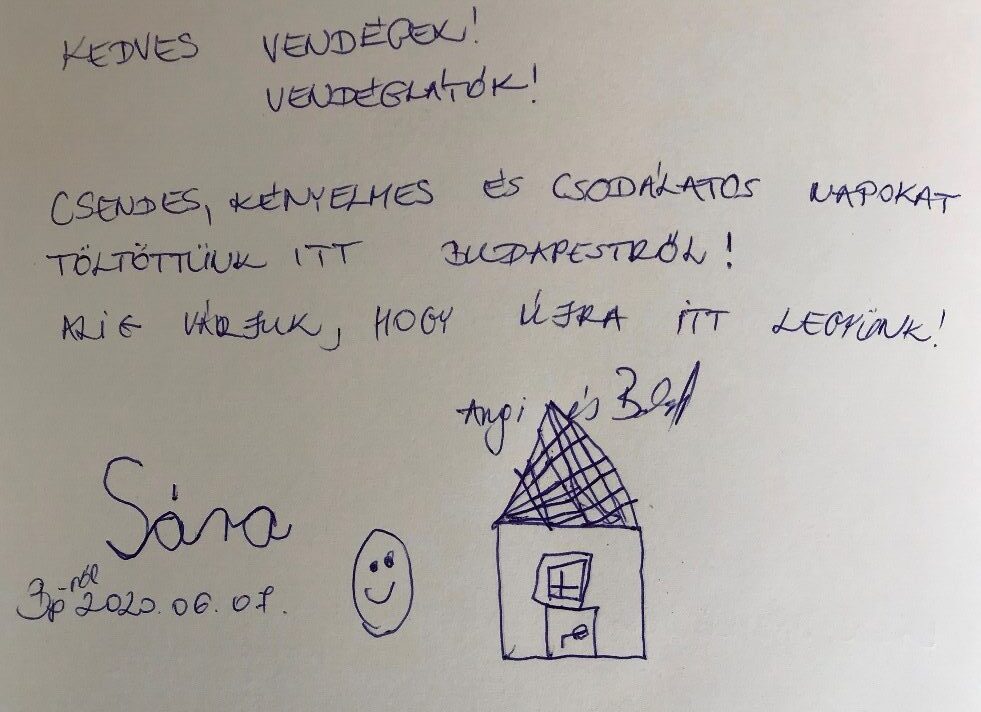 KEDVES VENDÉGEK!
VENDÉGLÁTÓK!
CSENDES, KÉNYELMES ÉS CSODÁLATOS NAPOKAT
TÖLTÖTTÜNK ITT BUDAPESTRŐL!
ALIG VÁRJUK, HOGY ÚJRA ITT LEGYÜNK!
Angi és
Sára
Bp-ről 2020.06.07.